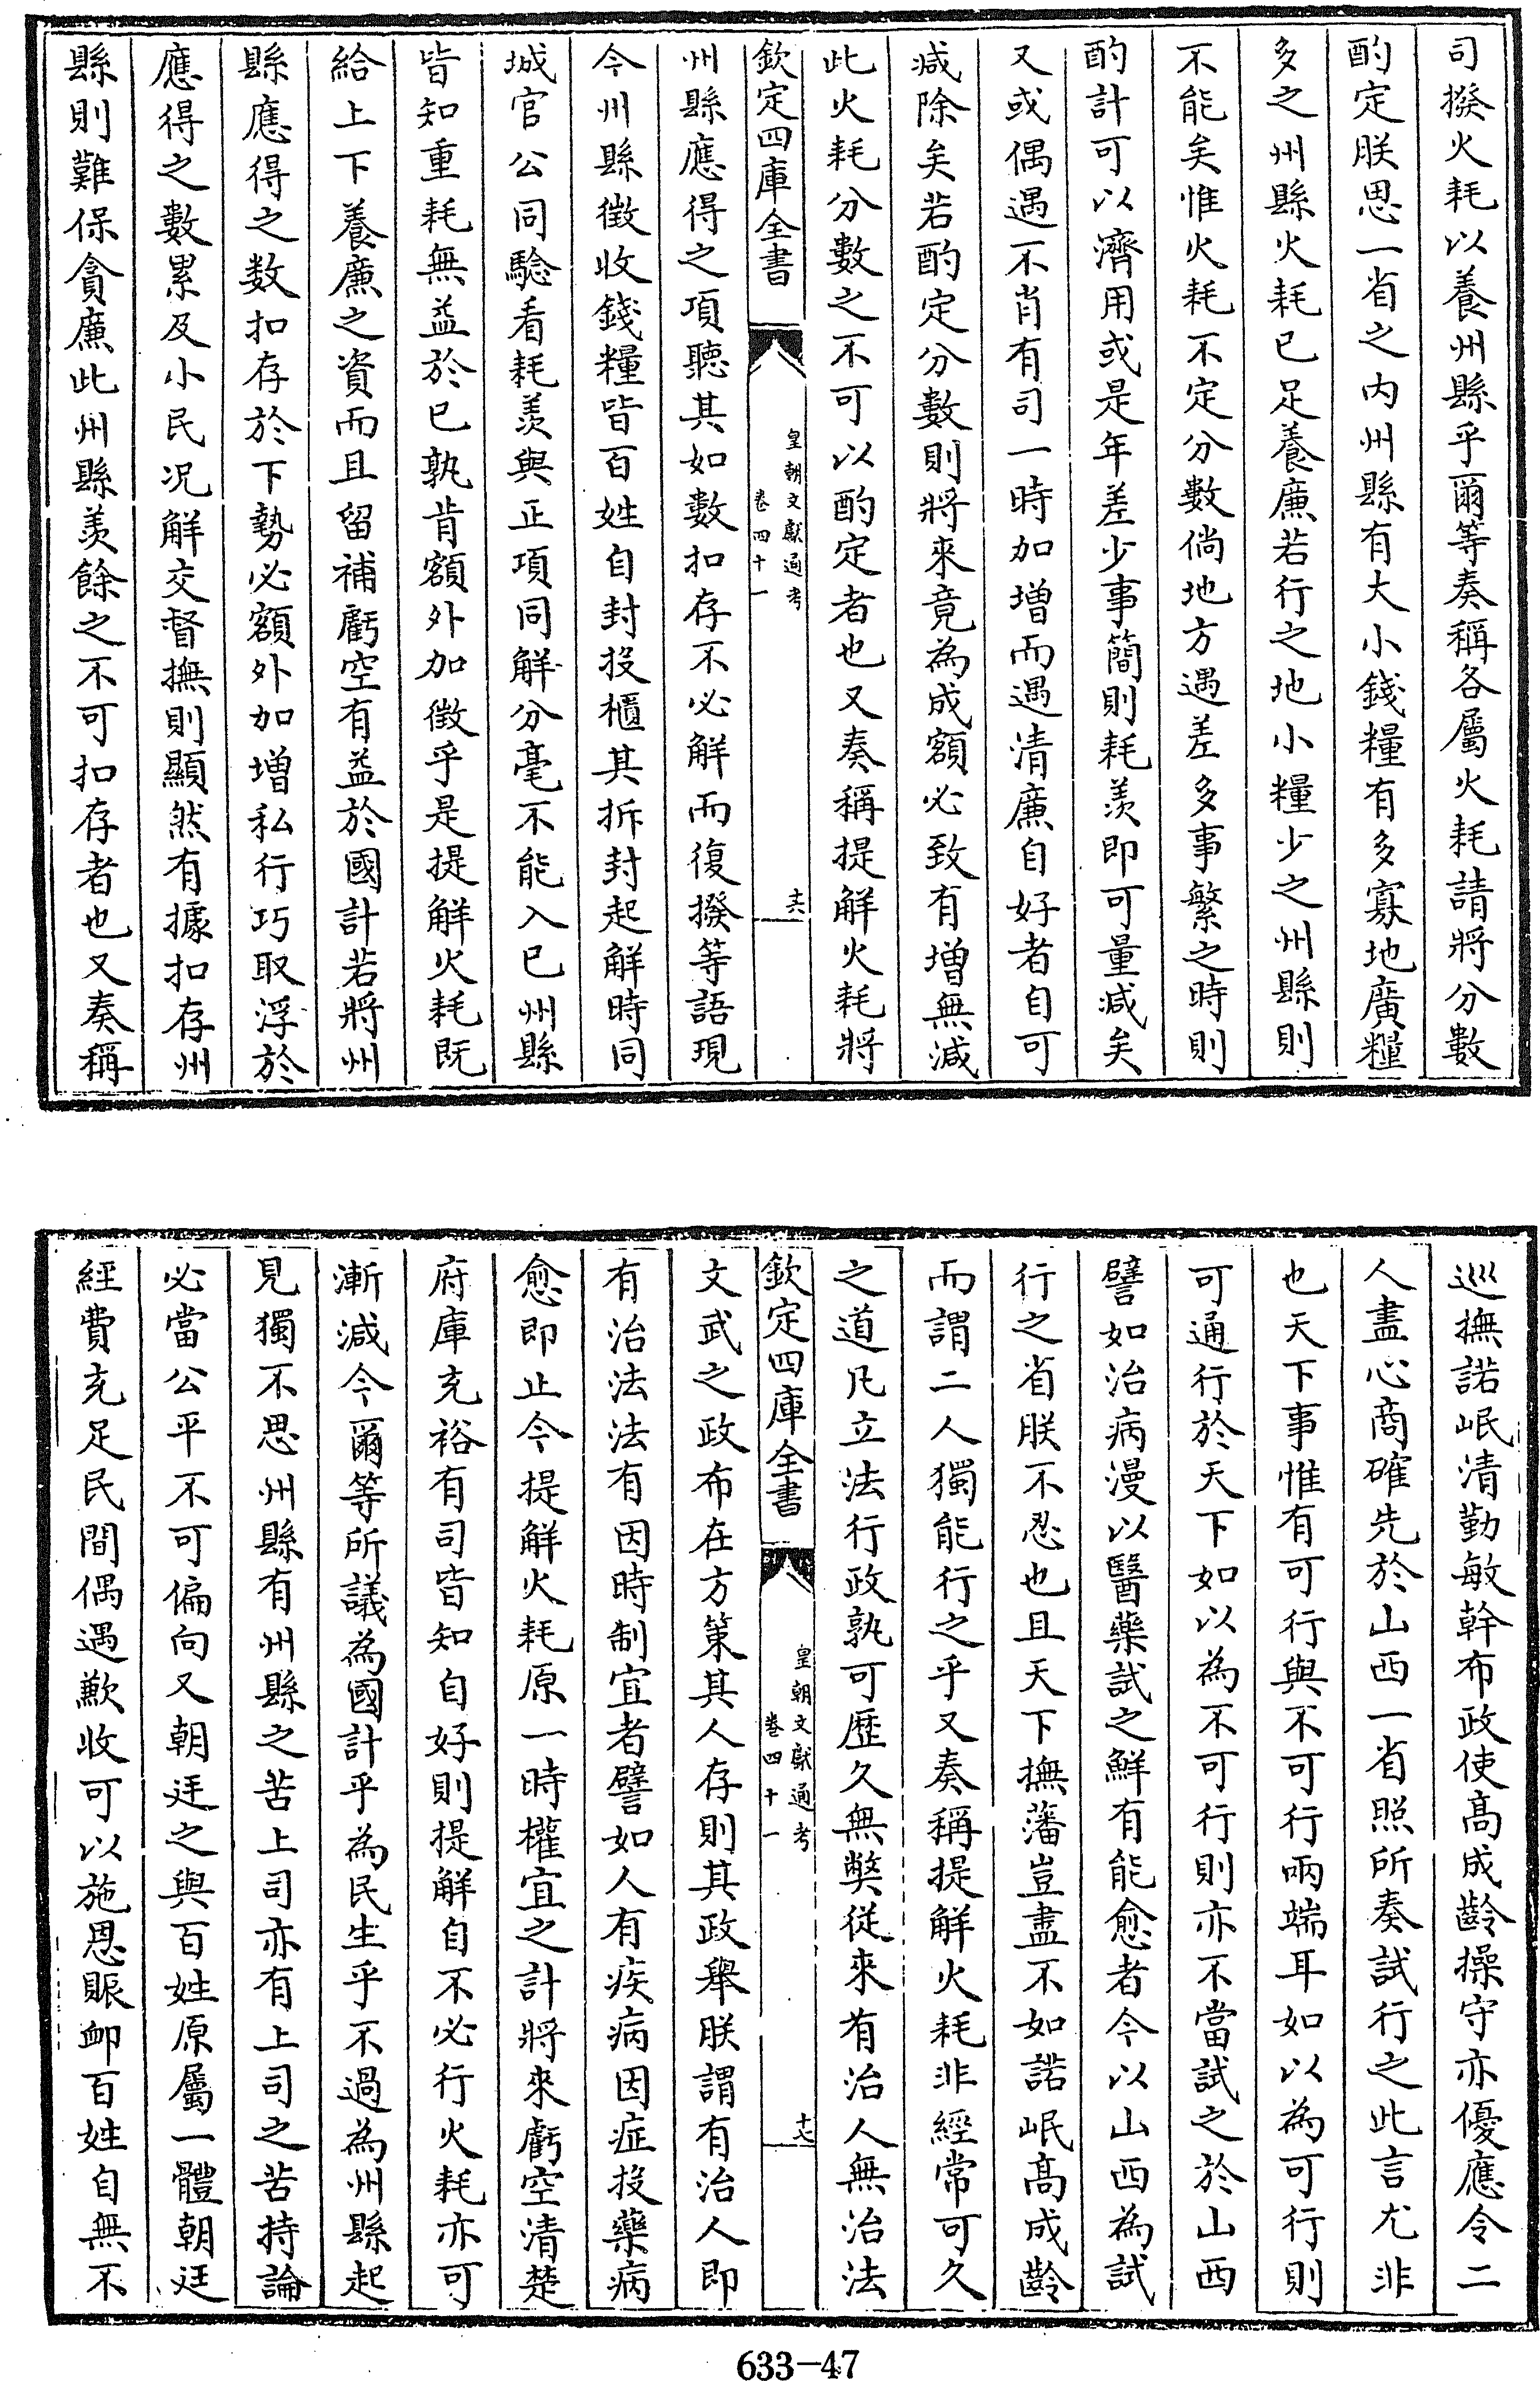 司撥火耗以養州縣乎爾等奏稱各屬火耗請將分數
酌定朕思一省之内州縣有大小錢糧有多寡地廣糧
多之州縣火耗已足養廉若行之地小糧少之州縣則
不能矣惟火耗不定分數倘地方遇差多事繁之時則
酌計可以濟用或是年差少事簡則耗羡即可量減矣
又或偶遇不肖有司一時加增而遇清廉自好者自可
減除矣若酌定分數則將來竟為成額必致有增無減
此火耗分數之不可以酌定者也又奏稱提解火耗將
欽定四庫全書
皇朝文獻通考
卷四十一
十六
州縣應得之項聽其如數扣存不必解而復撥等語現
今州縣徵收錢糧皆百姓自封投櫃其拆封起解時同
城官公同驗看耗羡與正項同解分毫不能入已州縣
皆知重耗無益於已孰肯額外加徵乎是提解火耗既
給上下養廉之資而且留補虧空有益於國計若將州
縣應得之数扣存於下勢必額外加增私行巧取浮於
應得之數累及小民况解交督撫則顯然有據扣存州
縣則難保貪廉此州縣羡餘之不可扣存者也又奏稱
巡撫諾岷清勤敏幹布政使髙成齡操守亦優應令二
人盡心商確先於山西一省照所奏試行之此言尤非
也天下事惟有可行與不可行兩端耳如以為可行則
可通行於天下如以為不可行則亦不當試之於山西
譬如治病漫以醫藥試之鮮有能愈者今以山西為試
行之省朕不忍也且天下撫藩豈盡不如諾岷髙成齡
而謂二人獨能行之乎又奏稱提解火耗非經常可久
之道凡立法行政孰可歴久無弊從來有治人無治法
欽定四庫全書
皇朝文獻通考
卷四十一
十七
文武之政布在方策其人存則其政舉朕謂有治人即
有治法法有因時制宜者譬如人有疾病因症投藥病
愈即止今提解火耗原一時權宜之計將來虧空清楚
府庫充裕有司皆知自好則提解自不必行火耗亦可
漸減今爾等所議為國計乎為民生乎不過為州縣起
見獨不思州縣有州縣之苦上司亦有上司之苦持論
必當公平不可偏向又朝廷之與百姓原屬一體朝廷
經費充足民間偶遇歉收可以施恩賑卹百姓自無不
633-47